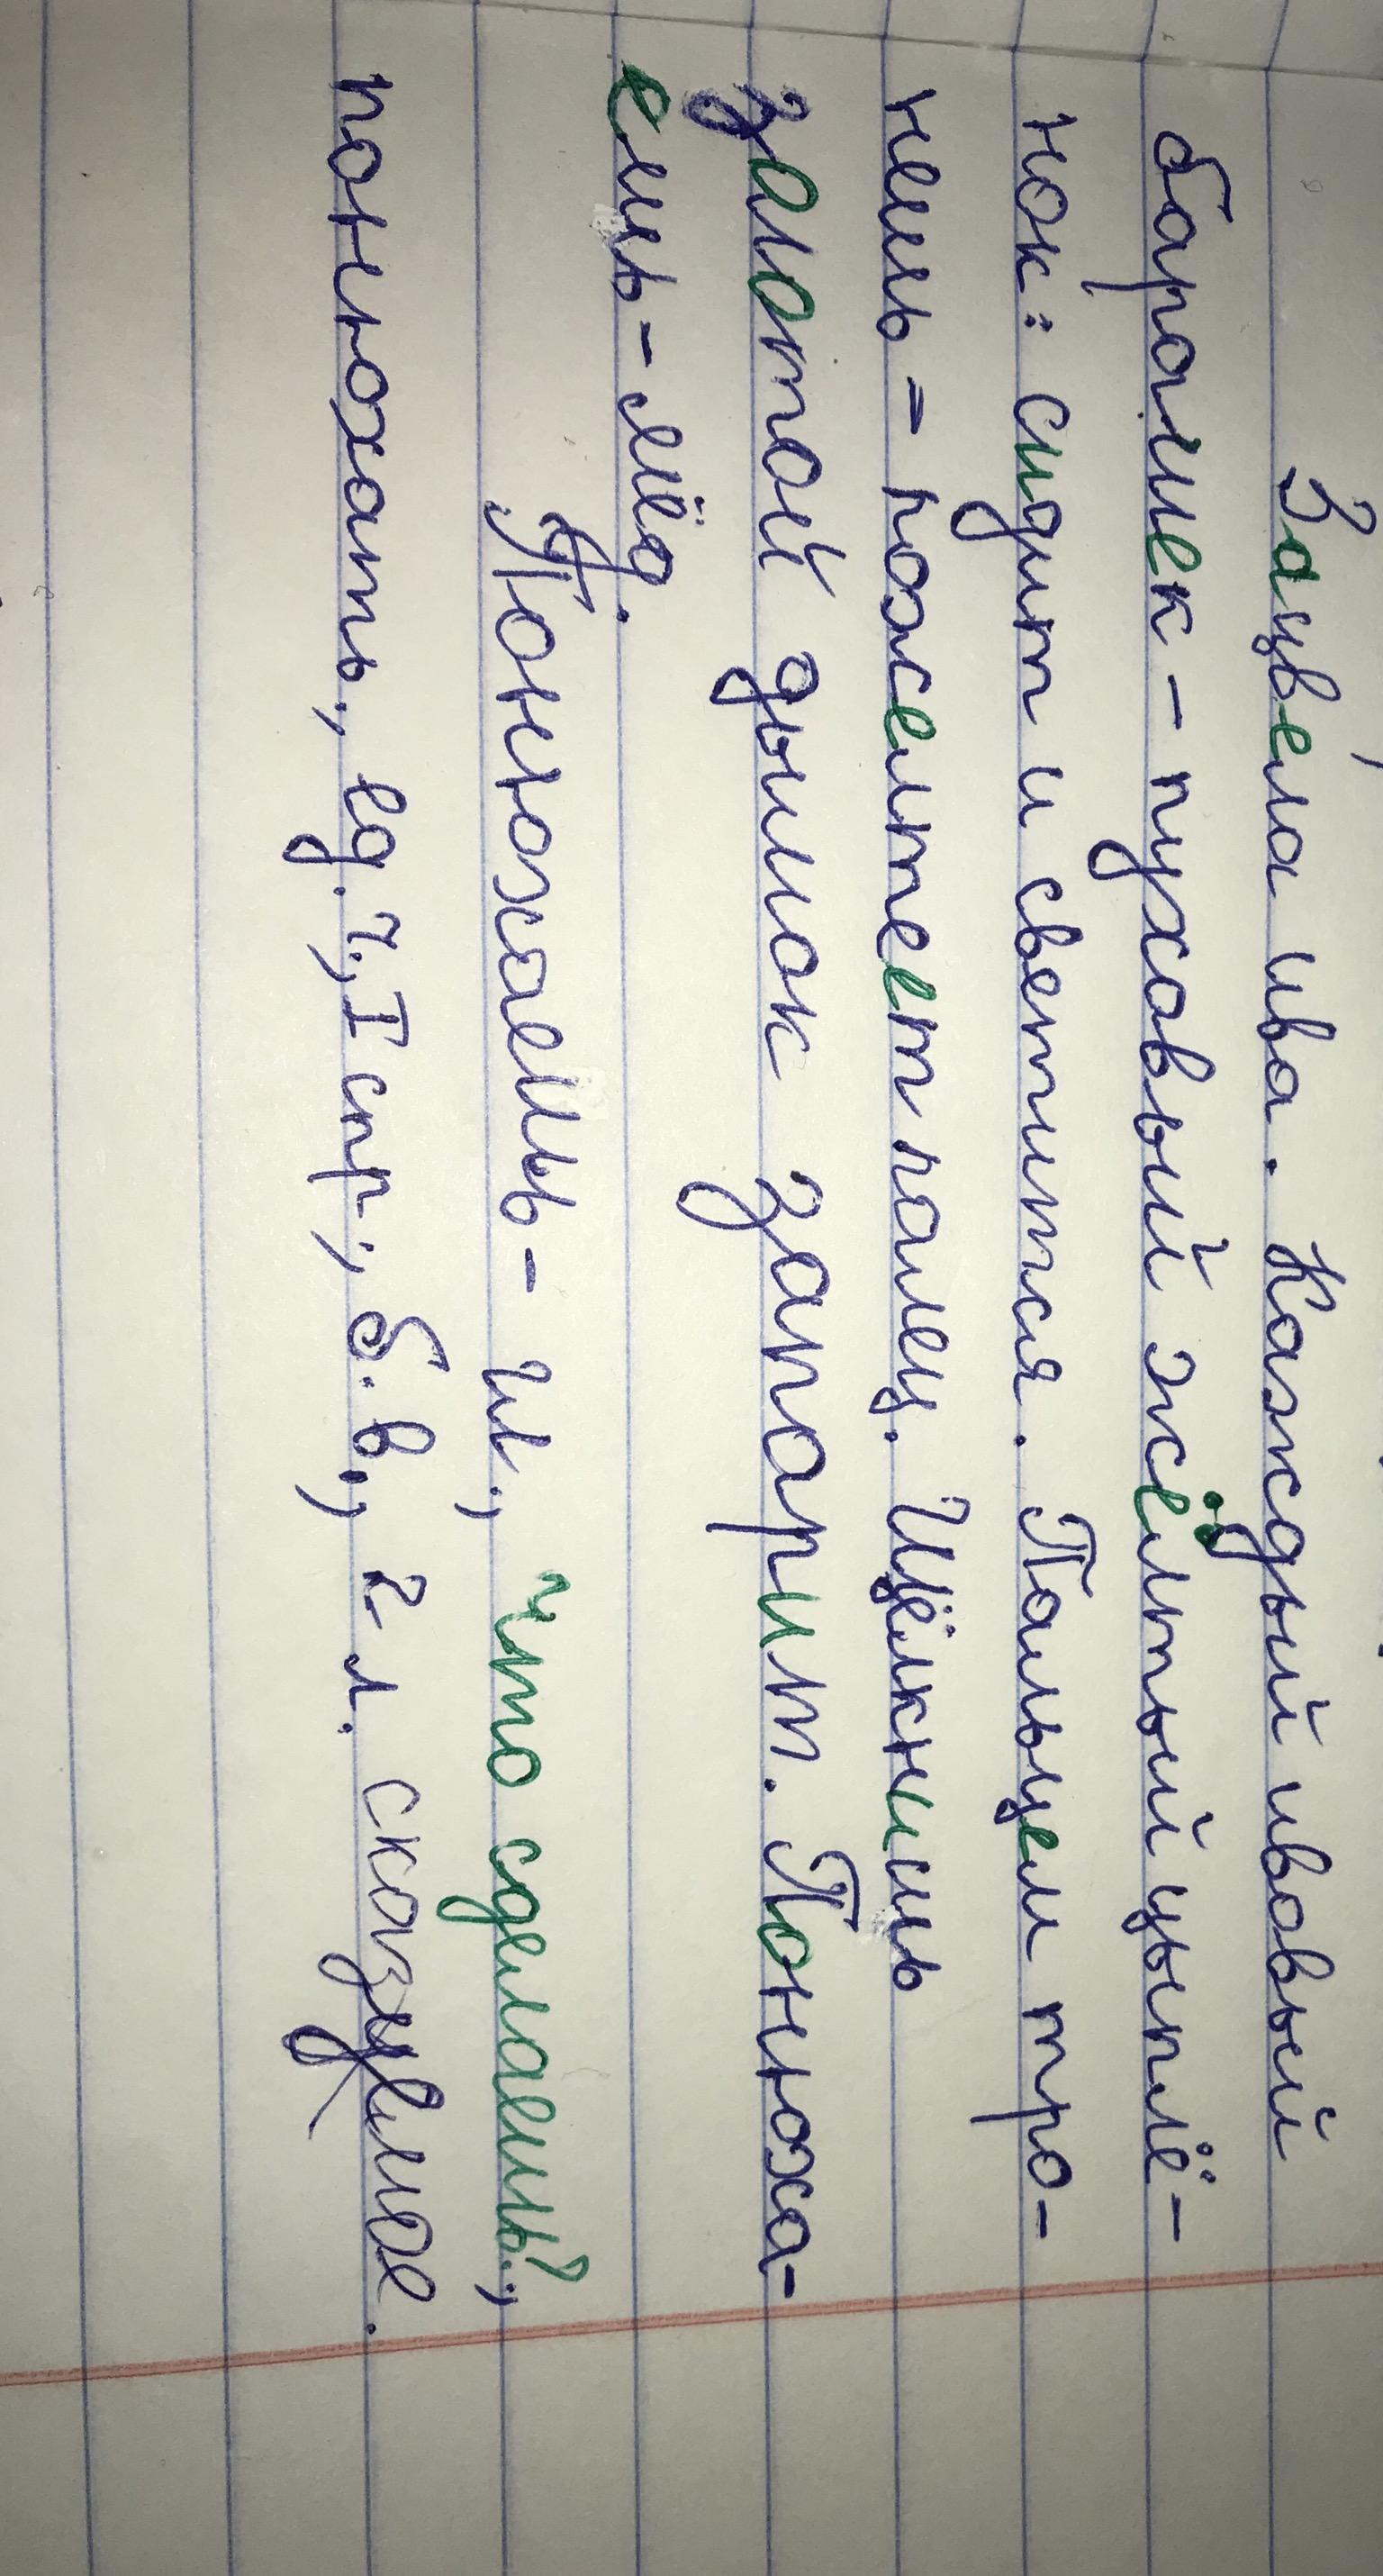 Зацвела ива. Каждый ивовый
барашек - пуховый жёлтый цыплё-
нок: сидит и светится. Пальцем тро-
нешь - пожелтеет палец. Щёлкнишь
залотой дымок запарит. Понюха-
ешь - мёд.
Понюхаешь - гл., что сделаешь?,
понюхать, ед.ч., I спр., б.в., 2 л. сказуемое.